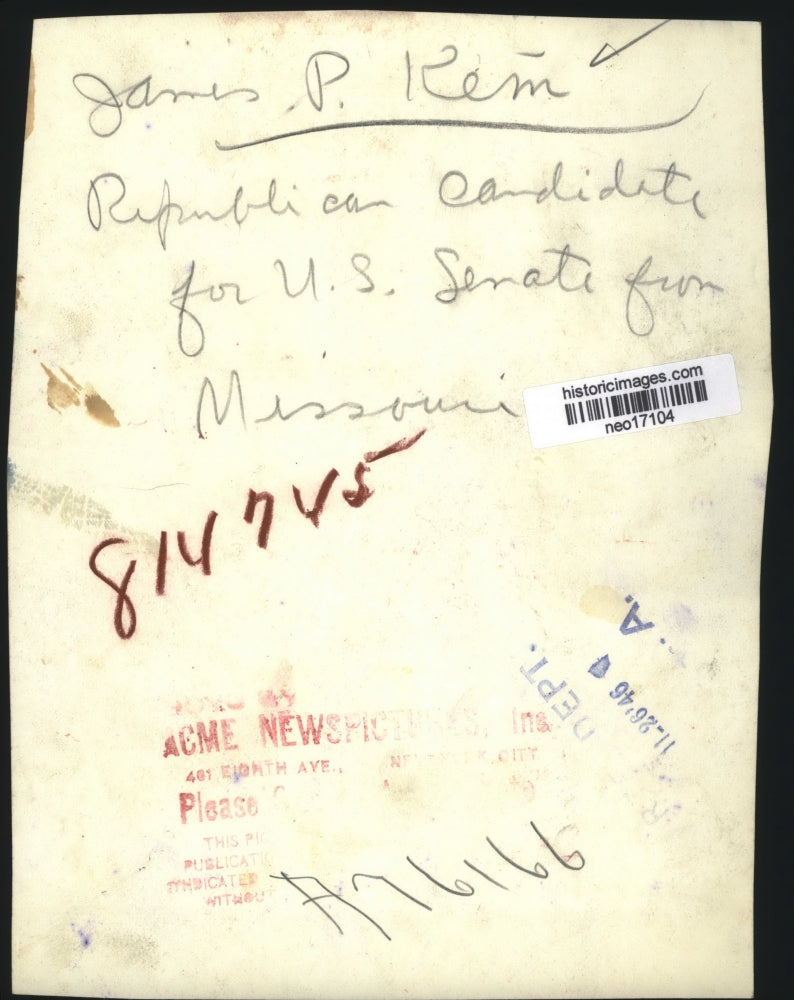 James P. Kem
Republican candidate
for U.S. Senate from
Missouri
historicimages.com
neo17104
814745
DEPT.
A.
11-26'46
ACME NEWSPICTURES, Inc.
461 EIGHTH AVE., NEW YORK CITY
Please
THIS PIC
PUBLICATI
SYNDICATED
WITHOU
A76166